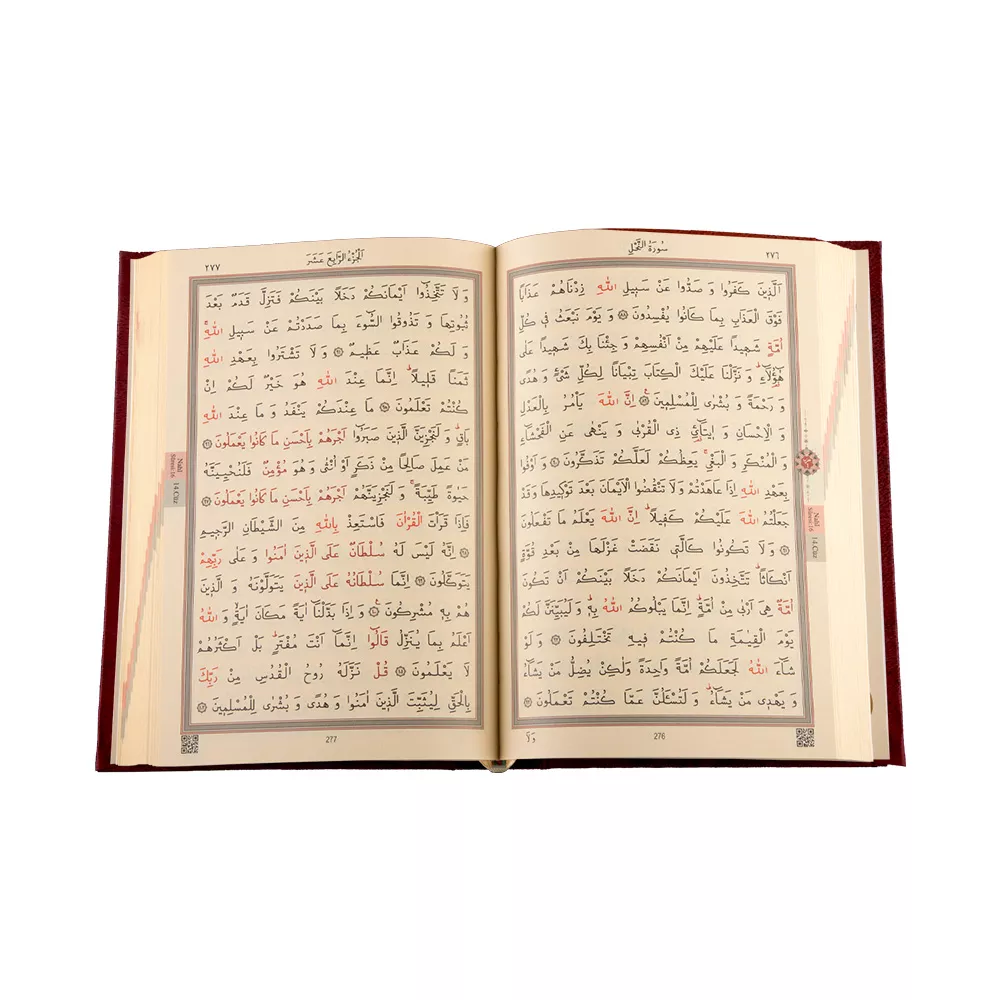 سُورَةُ النَّحْلِ
٢٧٦
اَلَّذِينَ كَفَرُوا وَ صَدُّوا عَنْ سَبِيلِ اللّٰهِ زِدْنَاهُمْ عَذَابًا
فَوْقَ الْعَذَابِ بِمَا كَانُوا يُفْسِدُونَ ﴿٨٨﴾ وَ يَوْمَ نَبْعَثُ فِي كُلِّ
اُمَّةٍ شَهِيدًا عَلَيْهِمْ مِنْ اَنْفُسِهِمْ وَ جِئْنَا بِكَ شَهِيدًا عَلٰى
هٰٓؤُلَٓاءِ وَ نَزَّلْنَا عَلَيْكَ الْكِتَابَ تِبْيَانًا لِكُلِّ شَيْءٍ وَ هُدًى
وَ رَحْمَةً وَ بُشْرٰى لِلْمُسْلِمِينَ ﴿٨٩﴾ اِنَّ اللّٰهَ يَأْمُرُ بِالْعَدْلِ
وَ الْاِحْسَانِ وَ اِيتَٓائِ ذِي الْقُرْبٰى وَ يَنْهٰى عَنِ الْفَحْشَٓاءِ
وَ الْمُنْكَرِ وَ الْبَغْيِ يَعِظُكُمْ لَعَلَّكُمْ تَذَكَّرُونَ ﴿٩٠﴾ وَ اَوْفُوا
بِعَهْدِ اللّٰهِ اِذَا عَاهَدْتُمْ وَ لَا تَنْقُضُوا الْاَيْمَانَ بَعْدَ تَوْكِيدِهَا وَ قَدْ
جَعَلْتُمُ اللّٰهَ عَلَيْكُمْ كَفِيلًا اِنَّ اللّٰهَ يَعْلَمُ مَا تَفْعَلُونَ
﴿٩١﴾ وَ لَا تَكُونُوا كَالَّتِي نَقَضَتْ غَزْلَهَا مِنْ بَعْدِ قُوَّةٍ
اَنْكَاثًا تَتَّخِذُونَ اَيْمَانَكُمْ دَخَلًا بَيْنَكُمْ اَنْ تَكُونَ
اُمَّةٌ هِيَ اَرْبٰى مِنْ اُمَّةٍ اِنَّمَا يَبْلُوكُمُ اللّٰهُ بِهِ وَ لَيُبَيِّنَنَّ لَكُمْ
يَوْمَ الْقِيٰمَةِ مَا كُنْتُمْ فِيهِ تَخْتَلِفُونَ ﴿٩٢﴾ وَ لَوْ
شَٓاءَ اللّٰهُ لَجَعَلَكُمْ اُمَّةً وَاحِدَةً وَ لٰكِنْ يُضِلُّ مَنْ يَشَٓاءُ
وَ يَهْدِي مَنْ يَشَٓاءُ وَ لَتُسْـَٔلُنَّ عَمَّا كُنْتُمْ تَعْمَلُونَ ﴿٩٣﴾
Nahl
Sûresi:16
14.Cüz
276
وَلَا
اَلْجُزْءُ الرَّابِعَ عَشَرَ
٢٧٧
وَ لَا تَتَّخِذُٓوا اَيْمَانَكُمْ دَخَلًا بَيْنَكُمْ فَتَزِلَّ قَدَمٌ بَعْدَ
ثُبُوتِهَا وَ تَذُوقُوا السُّٓوءَ بِمَا صَدَدْتُمْ عَنْ سَبِيلِ اللّٰهِ
وَ لَكُمْ عَذَابٌ عَظِيمٌ ﴿٩٤﴾ وَ لَا تَشْتَرُوا بِعَهْدِ اللّٰهِ
ثَمَنًا قَلِيلًا اِنَّمَا عِنْدَ اللّٰهِ هُوَ خَيْرٌ لَكُمْ اِنْ
كُنْتُمْ تَعْلَمُونَ ﴿٩٥﴾ مَا عِنْدَكُمْ يَنْفَدُ وَ مَا عِنْدَ اللّٰهِ
بَاقٍ وَ لَنَجْزِيَنَّ الَّذِينَ صَبَرُٓوا اَجْرَهُمْ بِاَحْسَنِ مَا كَانُوا يَعْمَلُونَ ﴿٩٦﴾
مَنْ عَمِلَ صَالِحًا مِنْ ذَكَرٍ اَوْ اُنْثٰى وَ هُوَ مُؤْمِنٌ فَلَنُحْيِيَنَّهُ
حَيٰوةً طَيِّبَةً وَ لَنَجْزِيَنَّهُمْ اَجْرَهُمْ بِاَحْسَنِ مَا كَانُوا يَعْمَلُونَ ﴿٩٧﴾
فَاِذَا قَرَأْتَ الْقُرْاٰنَ فَاسْتَعِذْ بِاللّٰهِ مِنَ الشَّيْطَانِ الرَّجِيمِ
﴿٩٨﴾ اِنَّهُ لَيْسَ لَهُ سُلْطَانٌ عَلَى الَّذِينَ اٰمَنُوا وَ عَلٰى رَبِّهِمْ
يَتَوَكَّلُونَ ﴿٩٩﴾ اِنَّمَا سُلْطَانُهُ عَلَى الَّذِينَ يَتَوَلَّوْنَهُ وَ الَّذِينَ
هُمْ بِهِ مُشْرِكُونَ ﴿١٠٠﴾ وَ اِذَا بَدَّلْنَٓا اٰيَةً مَكَانَ اٰيَةٍ وَ اللّٰهُ
اَعْلَمُ بِمَا يُنَزِّلُ قَالُٓوا اِنَّمَٓا اَنْتَ مُفْتَرٍ بَلْ اَكْثَرُهُمْ
لَا يَعْلَمُونَ ﴿١٠١﴾ قُلْ نَزَّلَهُ رُوحُ الْقُدُسِ مِنْ رَبِّكَ
بِالْحَقِّ لِيُثَبِّتَ الَّذِينَ اٰمَنُوا وَ هُدًى وَ بُشْرٰى لِلْمُسْلِمِينَ ﴿١٠٢﴾
Nahl
Sûresi:16
14.Cüz
277